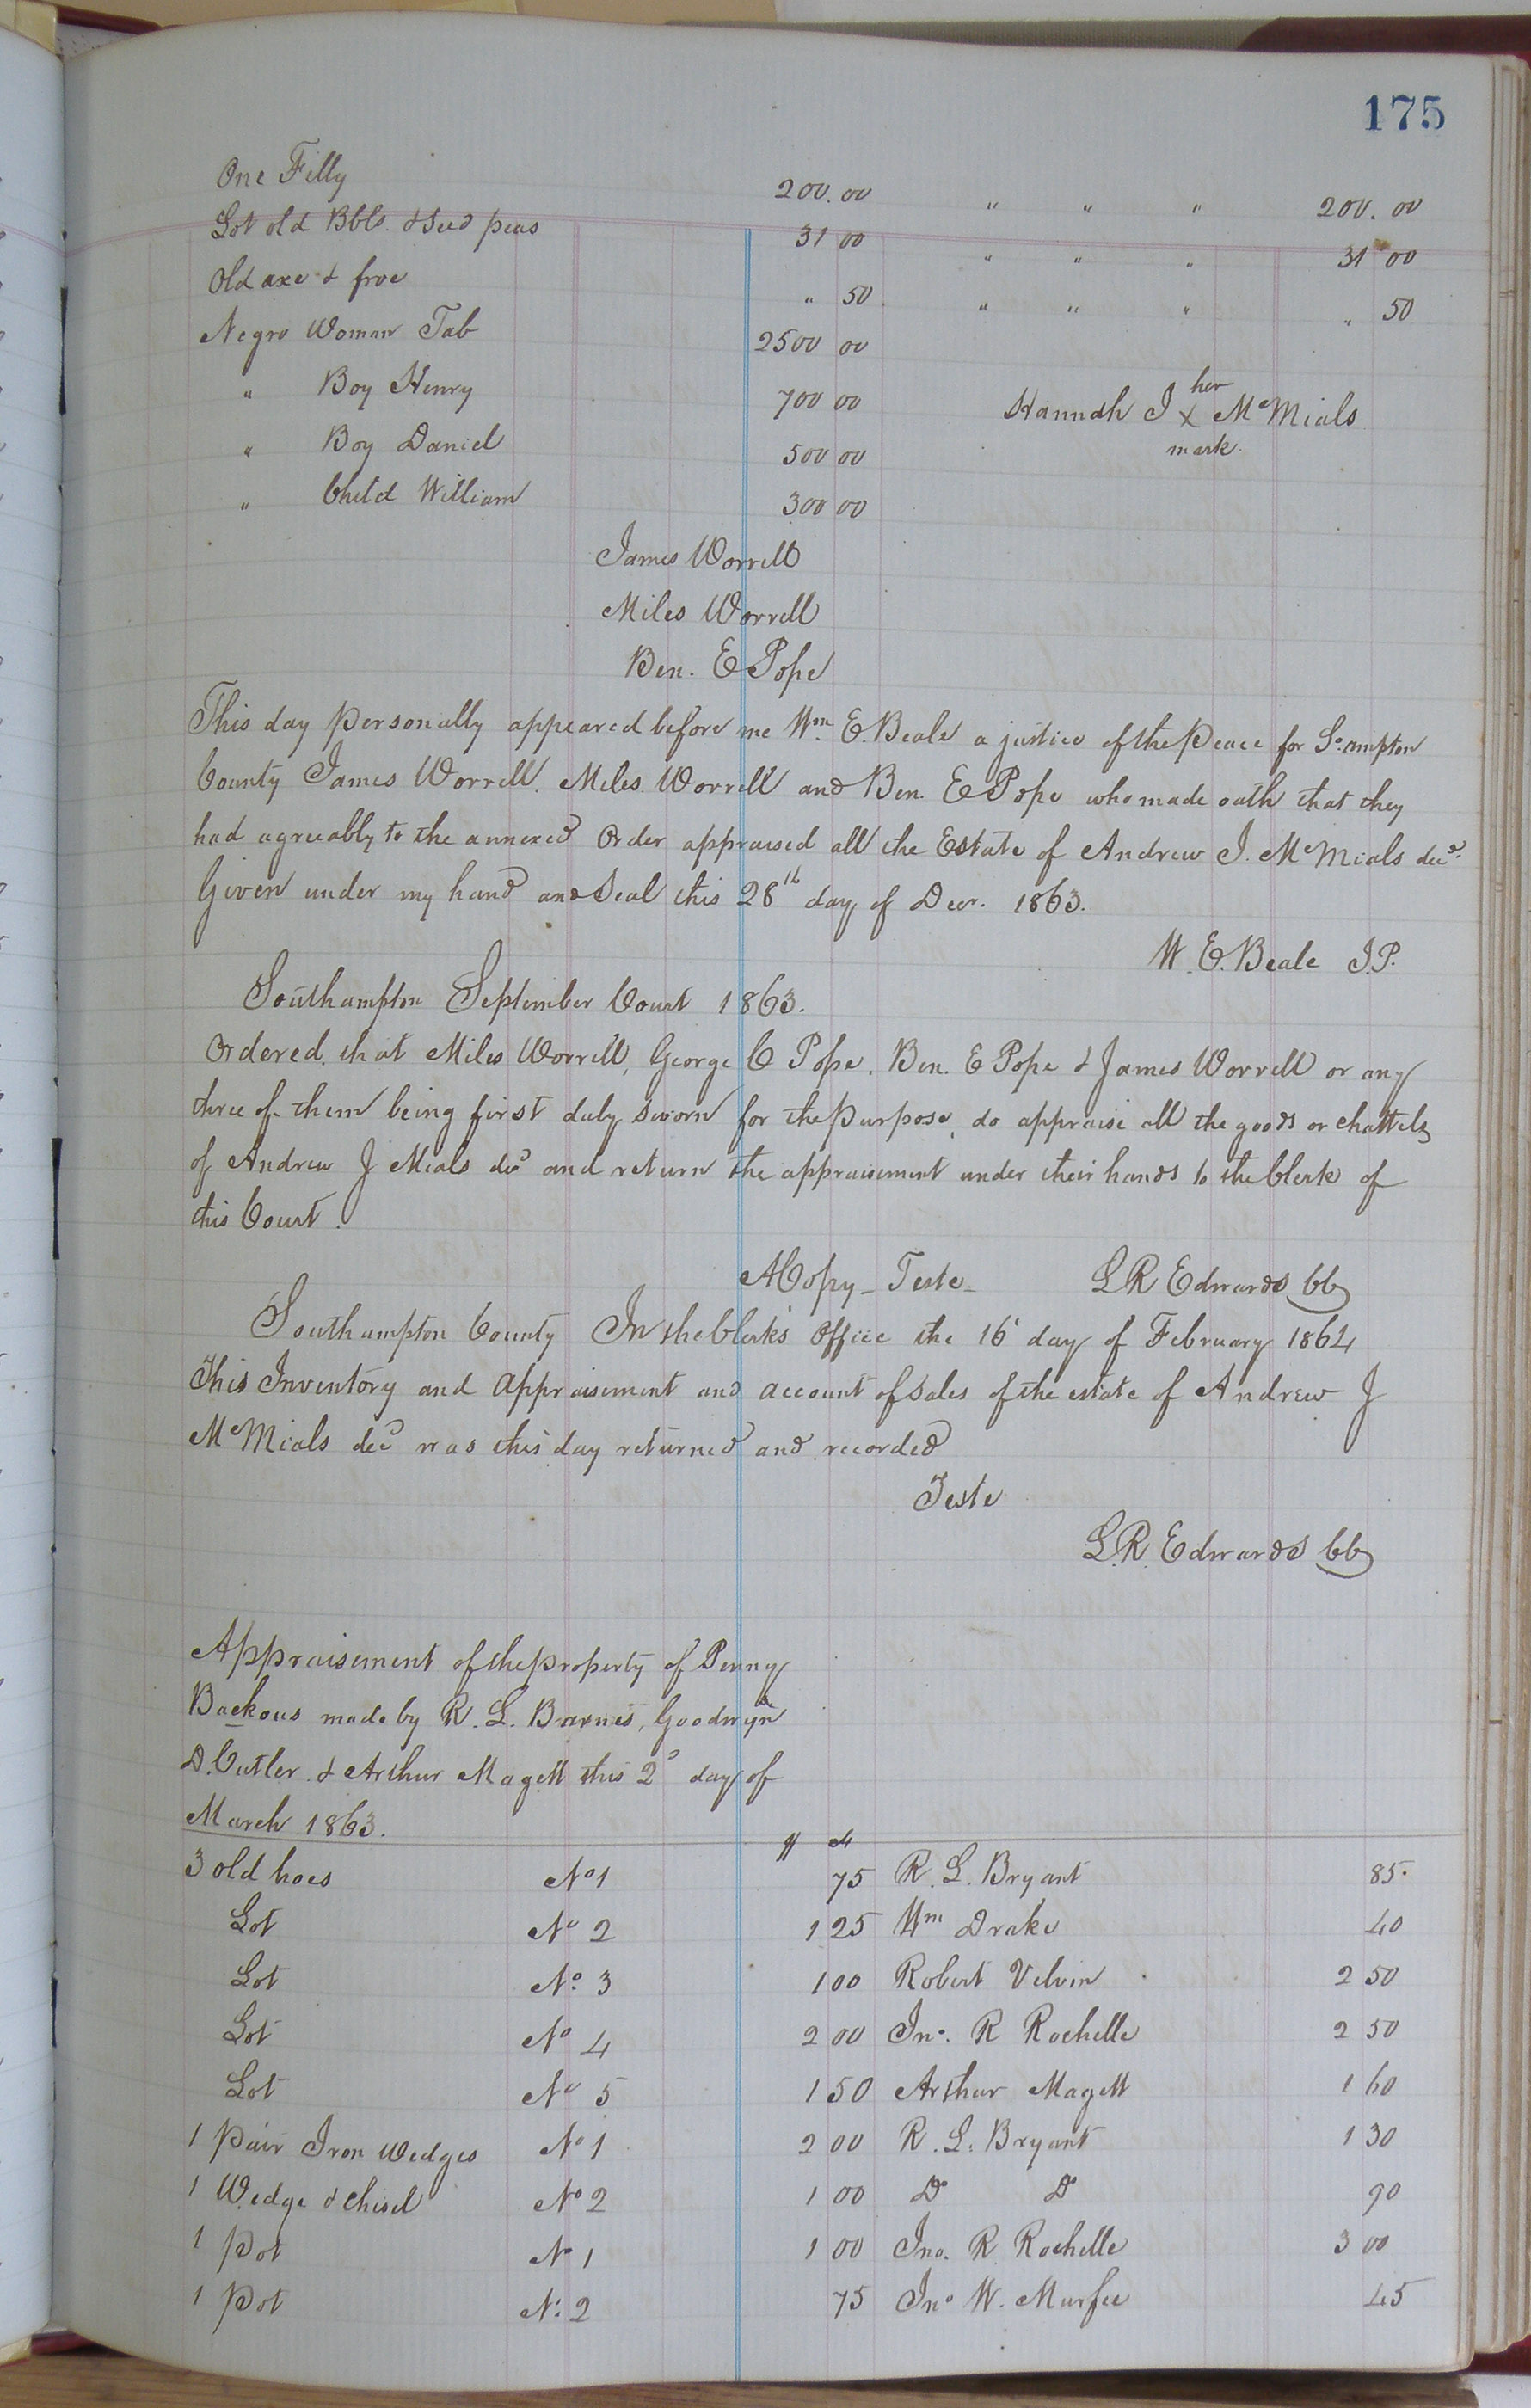 175
One Filly 200.00 " " " 200.00
Lot old Bbls. & Seed peas 31 00 " " " 31 00
Old axe & froe " 50 " " " " 50
Negro Woman Tab 2500 00
" Boy Henry 700 00 Hannah J her x mark McMials
" Boy Daniel 500 00
" Child William 300 00
James Worrell
Miles Worrell
Ben. E Pope
This day personally appeared before me Wm. E. Beale a justice of the Peace for So.ampton
County James Worrell. Miles Worrell and Ben. E Pope who made oath that they
had agreeably to the annexed Order appraised all the Estate of Andrew J. McMials decd.
Given under my hand and Seal this 28th day of Decr. 1863.
W. E. Beale J.P.
Southampton September Court 1863.
Ordered that Miles Worrell, George C Pope, Ben. E Pope & James Worrell or any
three of them being first duly sworn for the purpose, do appraise all the goods or chattels
of Andrew J Mials decd and return the appraisement under their hands to the Clerk of
this Court.
A Copy - Teste - L R Edwards CC
Southampton County In the Clerk's Office the 16' day of February 1864
This Inventory and Appraisement and account of sales of the estate of Andrew J
McMials decd was this day returned and recorded
Teste
L. R. Edwards CC
Appraisement of the property of Penny
Backous made by R. L. Barnes, Goodwyn
D. Cutler & Arthur Magett this 2d day of
March 1863.
$ cts
3 old hoes No 1 75 R. L. Bryant 85.
Lot No 2 1 25 Wm Drake 40
Lot No. 3 1 00 Robert Velvin 2 50
Lot No 4 2 00 Jno. R Rochelle 2 50
Lot No 5 1 50 Arthur Magett 1 60
1 Pair Iron Wedges No 1 2 00 R. L. Bryant 1 30
1 Wedge & chisel No 2 1 00 Do Do 90
1 Pot No 1 1 00 Jno. R Rochelle 3 00
1 Pot No. 2 75 Jno W. Murfee 45